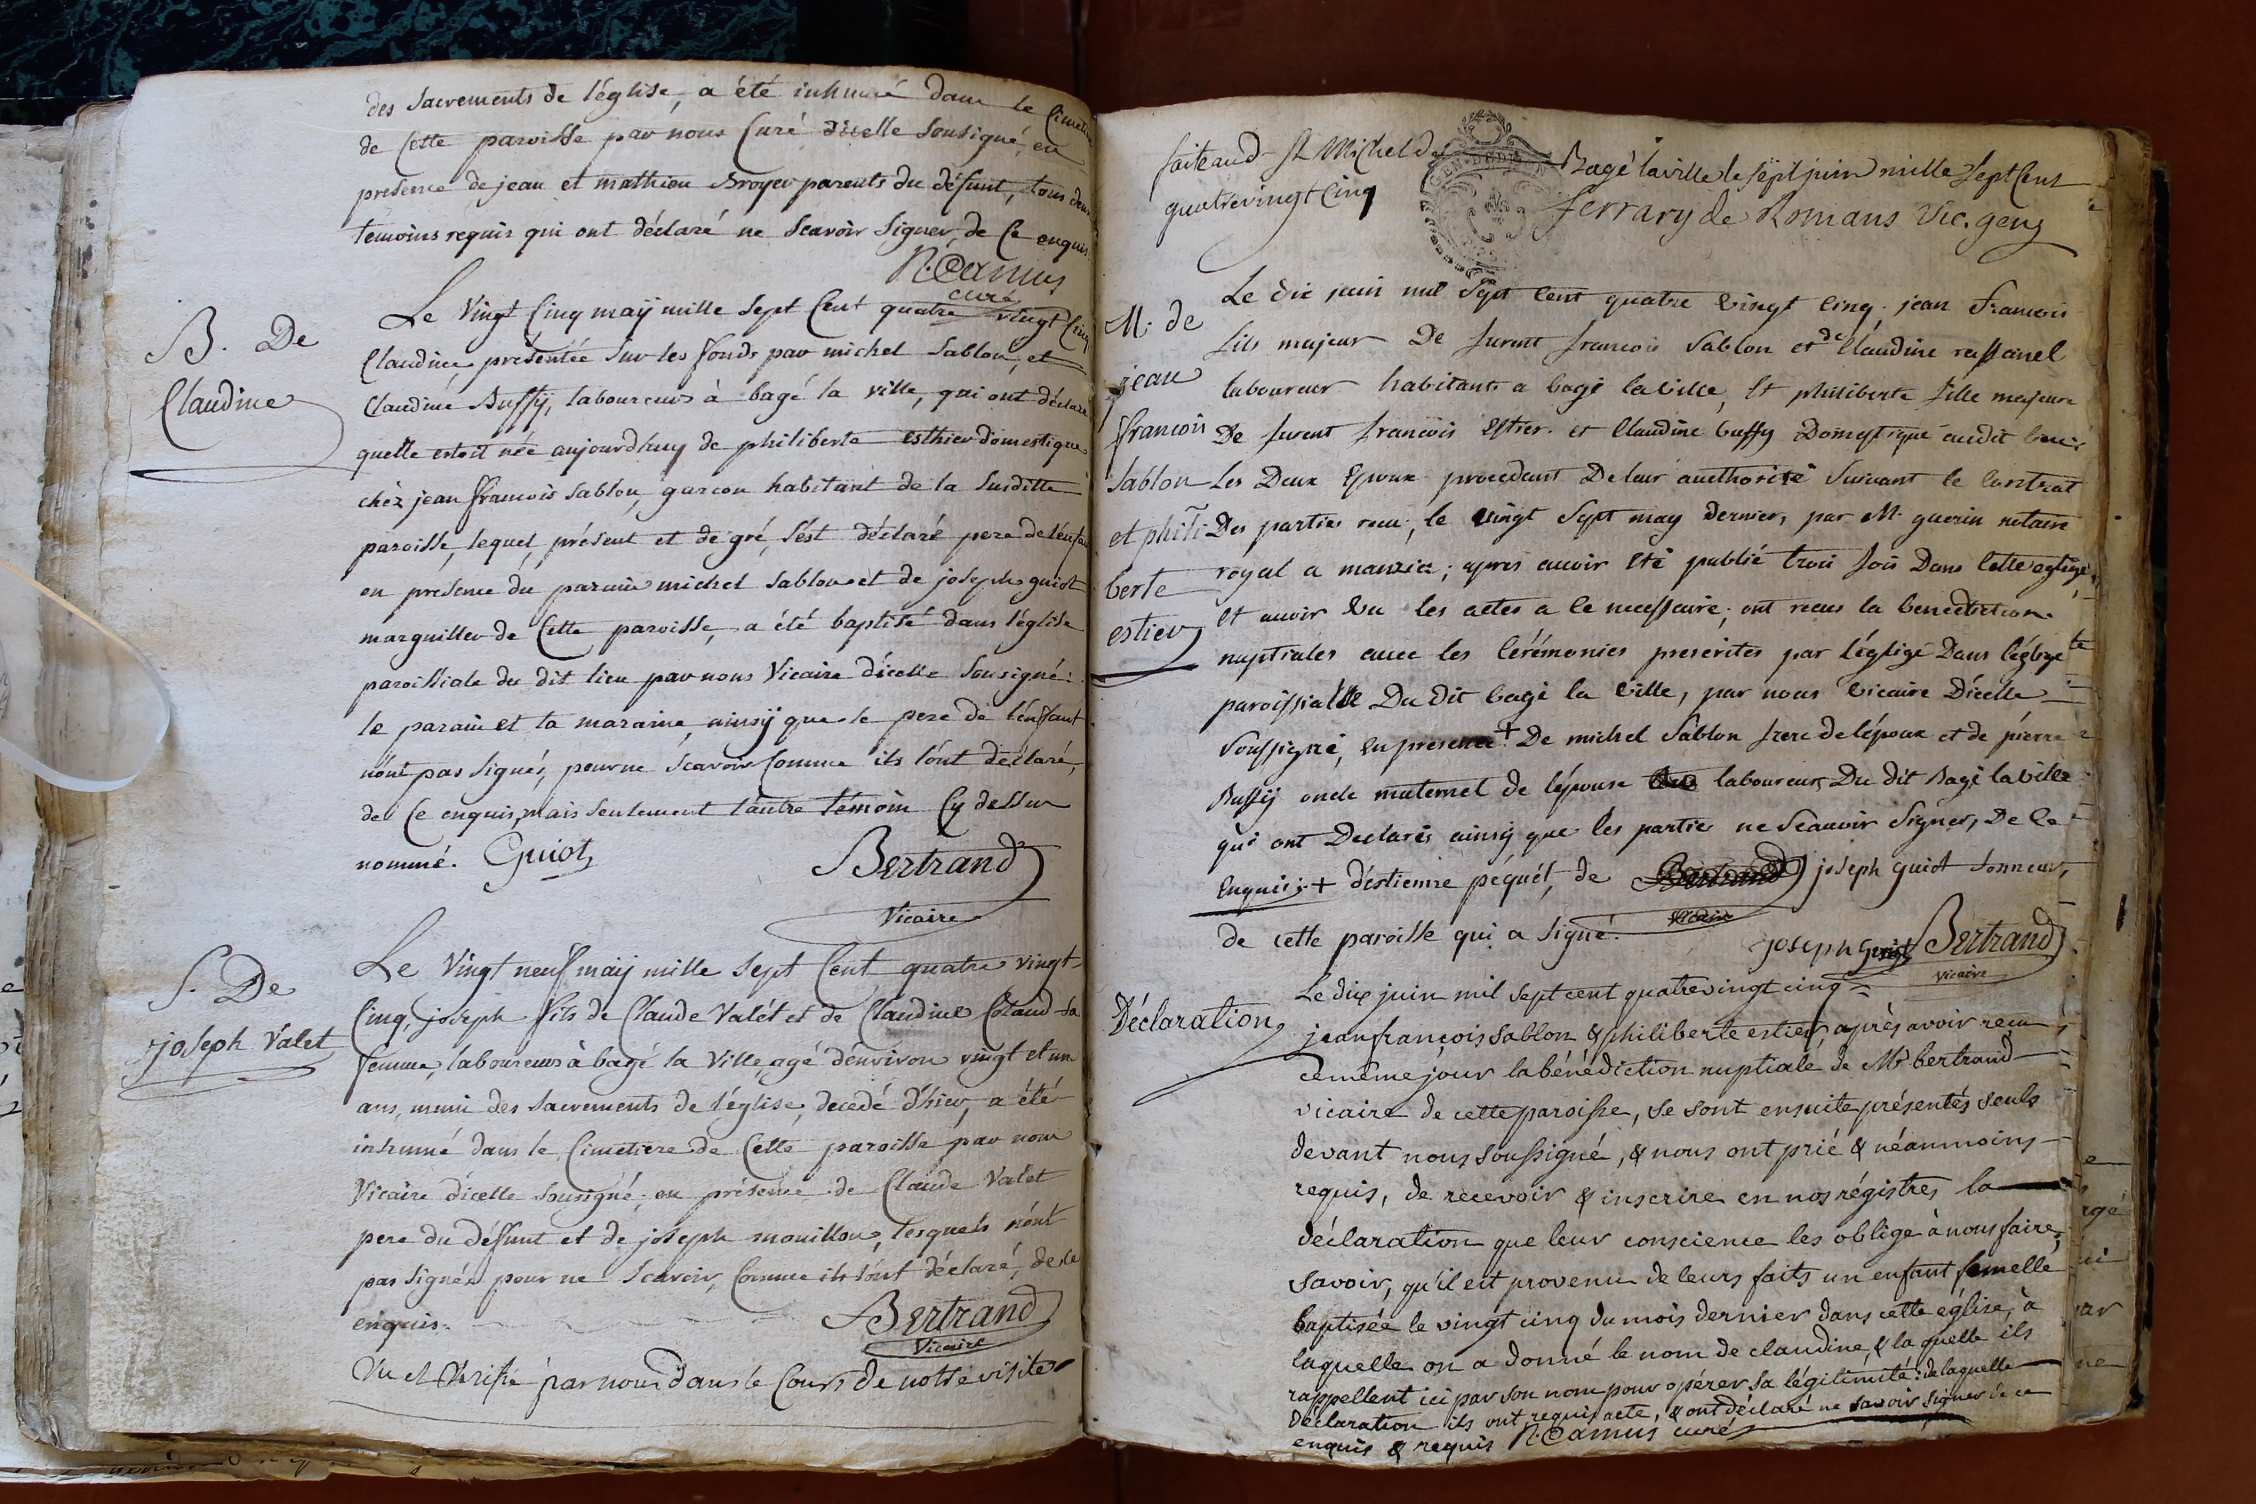 des sacrements de l'églisе, a été inhumé dans le Cimetiere
de Cette paroisse par nous Curé d'icelle sousigné, en
presence de jean et mathieu Broyer parents du défunt, tous deux
temoins requis qui ont déclaré ne scavoir signer, de Ce enquis.
N. Camus
curé
B. De
Claudine
Le vingt Cinq maÿ mille sept Cent quatre vingt Cinq
Claudine presentée sur les fonds par michel sablon, et
Claudine Buffÿ, laboureurs à bagé la ville, qui ont déclaré
quelle estoit née aujourdhuy de philiberte esthier domestique
chèz jean francois sablon, garcon habitant de la susditte
paroisse, lequel, présent et de gré, s'est déclaré pere de l'énfant
en presence du parain michel sablon et de joseph guiot
marguiller de Cette paroisse, a été baptisé dans l'église
paroissiale du dit lieu par nous Vicaire d'icelle sousigné:
le parain et la maraine, ainsÿ que le pere de l'énfant
n'ont pas signés, pour ne scavoir Comme ils l'ont déclaré,
de Ce enquis, mais seulement l'autre témoin Cy dessus
nommé. Guiot Bertrand
Vicaire
S. De
joseph Valet
Le Vingt neuf maÿ mille sept Cent quatre vingt
Cinq, joseph fils de Claude Valét et de Claudine Coland sa
femme, laboureurs à bagé la Ville, agé d'énviron vingt et un
ans, muni des sacrements de l'église, decedé d'hier, a été
inhumé dans le Cimetiere de Cette paroisse par nous
Vicaire d'icelle sousigné, en présence de Claude Valet
pere du défunt et de joseph mouillon, lesquels n'ont
pas signés pour ne scavoir, Comme ils l'ont déclaré, de ce
enquis. Bertrand
Vicaire
Vu et Vérifié par nous dans le Cours de notre visite
faite aud. St Michel de Bagé la ville le sept juin mille sept Cent
quatre vingt Cinq ferrary de Romans vic. gen
M. de
jean
francois
sablon
et phili
berte
estier
Le dix juin mil sept cent quatre vingt cinq. jean francois
fils majeur De furent francois sablon et de Claudine raffanel
laboureur habitants a bagé la ville, et philiberte fille majeure
De furent francois estier et Claudine buffy Domestique audit lieu;
Les Deux Epoux procedant De leur authorité suivant le contrat
Des parties recu, le vingt sept may dernier, par M. guerin notaire
royal a manziat; apres avoir été publié trois fois Dans Cette eglise,
et avoir vu les actes a ce necessaire; ont recus la benediction
nuptiales avec les Cérémonies prescrites par l'église Dans l'église
paroissialle Du Dit bagé la ville, par nous vicaire D'icelle
soussigné, en presence + De michel sablon frere de l'époux et de piérre
Buffÿ oncle maternel de l'épouse laboureurs Du dit Bagé la ville
qui ont Declarés ainsÿ que les parties ne scauoir signer, De Ce
Enquis; + d'éstienne péquét, de Bertrand joseph guiot sonneur,
Vicaire
de cette paroisse qui a signé. joseph Guiot Bertrand
Vicaire
Déclaration
Le dix juin mil sept cent quatre vingt cinq
jean françois sablon & philiberte estier, après avoir recu
ce même jour la bénédiction nuptiale de Mr bertrand
vicaire de cette paroisse, se sont ensuite présentés seuls
devant nous soussigné, & nous ont prié & néanmoins
requis, de recevoir & inscrire en nos régistres la
déclaration que leur conscience les oblige à nous faire,
savoir, qu'il est provenu de leurs faits un enfant femelle
baptisée le vingt cinq du mois dernier dans cette église, à
laquelle on a donné le nom de claudine, & la quelle ils
rappellent ici par son nom pour opérer sa légitimité: de laquelle
déclaration ils ont requis acte, & ont déclaré ne savoir signer de ce
enquis & requis N. Camus curé